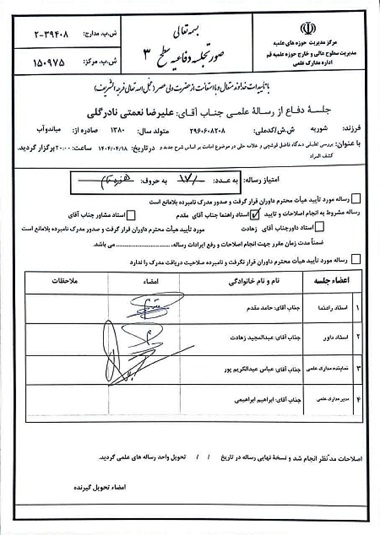 بسمه تعالی
ش.ب. مدارج: ۳۹۴۰۸-۲
ش.ب. مرکز: ۱۵۰۹۷۵
مرکز مدیریت حوزه های علمیه
مدیریت سطوح عالی و خارج حوزه علمیه قم
اداره مدارک علمی
صورتجلسه دفاعیه سطح ۳
با تأییدات خداوند متعال و با استعانت از حضرت ولی عصر (عجل الله تعالی فرجه الشریف)
جلسه دفاع از رسالهٔ علمی جناب آقای: علیرضا نعمتی نادرگلی
فرزند: شوربه ش.ش/کدملی: ۲۹۶۰۶۸۲۰۸ متولد سال: ۱۳۸۰ صادره از: میاندوآب
با عنوان: بررسی تطبیقی دیدگاه فاضل قوشچی و علامه حلی در موضوع امامت بر اساس شرح جدید و کشف المراد در تاریخ: ۱۴۰۴/۰۴/۱۸ ساعت: ۲۰:۰۰ برگزار گردید.
امتیاز رساله: به عدد: ۱۷/ به حروف:
رساله مورد تأیید هیأت محترم داوران قرار گرفت و صدور مدرک نامبرده بلامانع است
رساله مشروط به انجام اصلاحات و تایید استاد راهنما جناب آقای مقدم استاد مشاور جناب آقای
استاد داور جناب آقای زهادت مورد تأیید هیأت محترم داوران قرار گرفت و صدور مدرک نامبرده بلامانع است
ضمناً مدت زمان مقرر جهت انجام اصلاحات و رفع ایرادات رساله، می باشد.
رساله مورد تأیید هیأت محترم داوران قرار نگرفت و نامبرده صلاحیت دریافت مدرک را ندارد
اعضاء جلسه نام و نام خانوادگی امضاء ملاحظات
۱ استاد راهنما جناب آقای: حامد مقدم
۲ استاد داور جناب آقای: عبدالمجید زهادت
۳ نماینده مدارک علمی جناب آقای: عباس عبدالکریم پور
۴ مدیر مدارک علمی جناب آقای: ابراهیم ابراهیمی
اصلاحات مدّ نظر انجام شد و نسخهٔ نهایی رساله در تاریخ / / تحویل واحد رساله های علمی گردید.
امضاء تحویل گیرنده